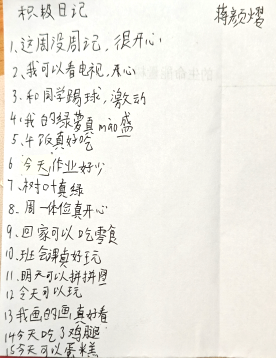 积极日记 蒋颜熠
1、这周没周记，很开心
2、我可以看电视，开心
3、和同学踢球，激动
4、我的绿萝真mào盛
5、午饭真好吃
6 今天作业好少
7、树叶真绿
8、周一体位真开心
9、回家可以吃零食
10、班会课真好玩
11、明天可以拼拼图
12 今天可以玩
13 我画的画真好看
14 今天吃了鸡腿
15 今天可以蛋糕